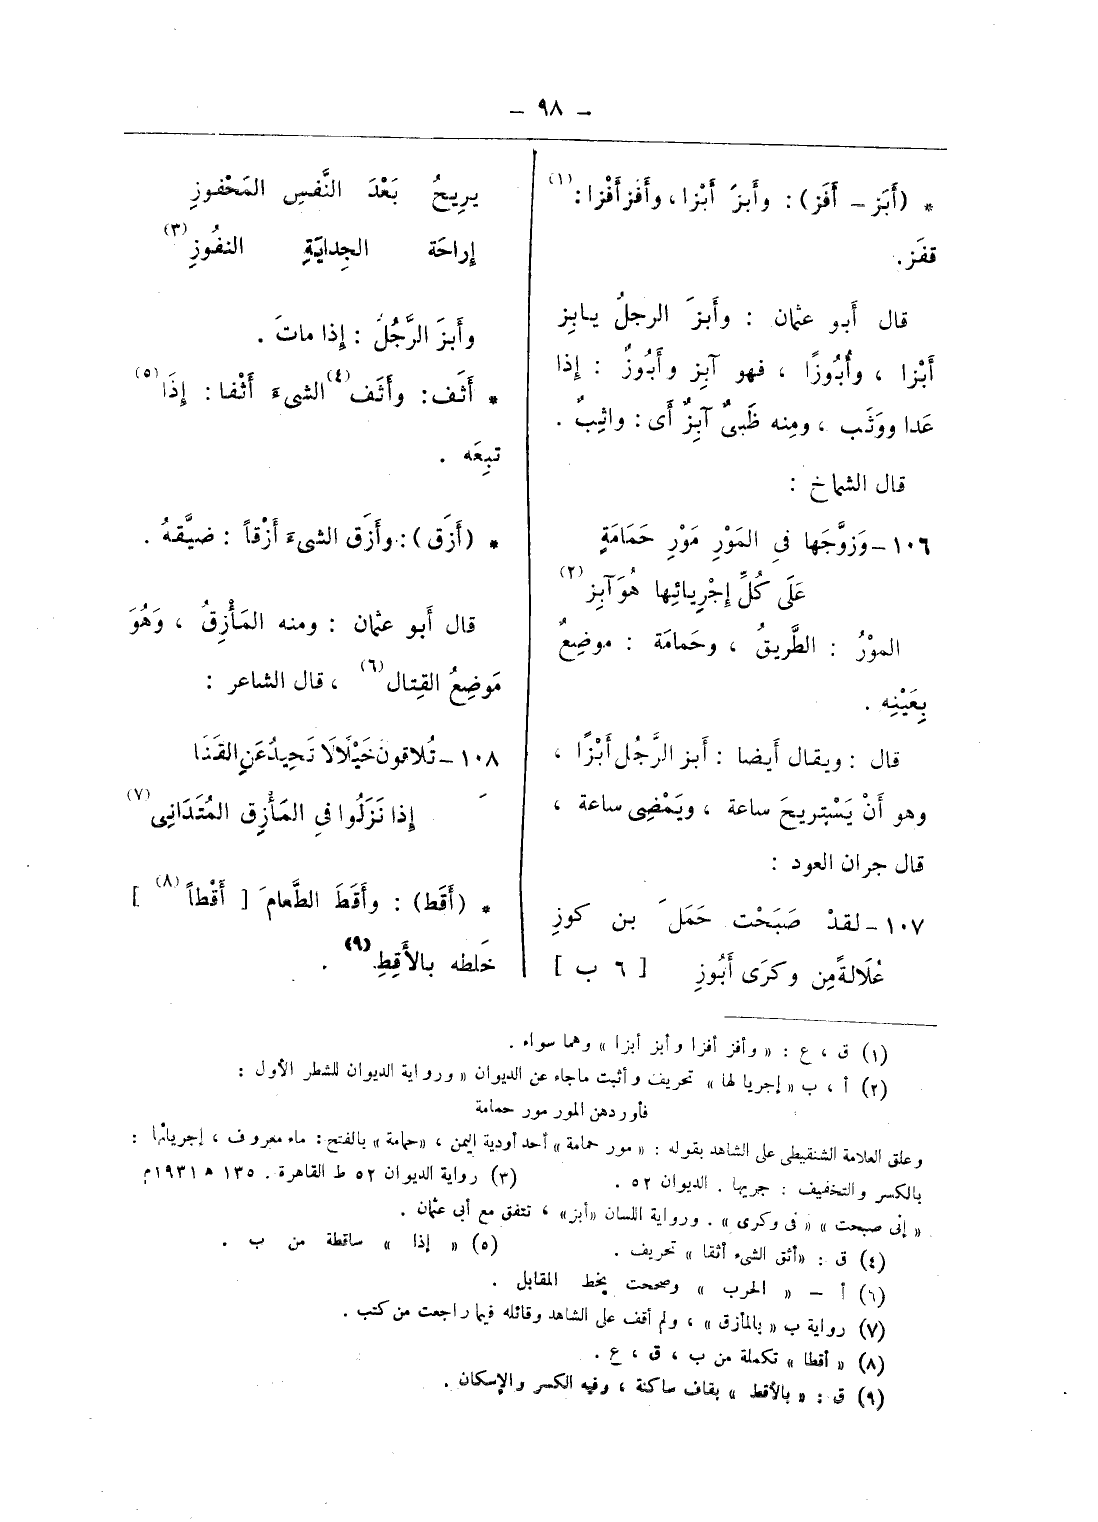 – ٩٨ –
* (أَبَز – أَفَز) : وأَبزَ أَبْزا ، وأَفَز أَفْزا :(١)
قفَز.
قال أَبو عثمان : وأَبزَ الرجلُ يأبِز
أَبْزا ، وأُبُوزًا ، فهو آبِز وأَبُوزٌ : إِذا
عَدا ووَثَب ، ومِنه ظَبىٌ آبِزٌ أَى : واثِبٌ .
قال الشماخ :
١٠٦ – وَزوَّجَها فى المَوْرِ مَوْرِ حَمَامَةٍ
عَلَى كُلِّ إِجْرِيائِها هُوَ آبِز(٢)
الموْرُ : الطَّريقُ ، وحَمامَة : موضِعٌ
بِعَيْنِه .
قال : ويقال أَيضا : أَبز الرَّجُل أَبْزًا ،
وهو أَنْ يَسْتريحَ ساعة ، ويَمْضِى ساعة ،
قال جران العود :
١٠٧ – لقدْ صَبَحْت حَمَلَ بن كوزِ
عُلَالةً مِن وكرَى أَبُوزِ [ ٦ ب ]
يرِيحُ بَعْدَ النَّفسِ المَحْفوزِ
إِراحَة الجِدايَةِ النفُوزِ(٣)
وأَبزَ الرَّجُلُ : إِذا ماتَ .
* أَثَف : وأَثَف(٤) الشىءَ أَثْفا : إِذَا(٥)
تبِعَه .
* (أَزَق) : وأَزَق الشىءَ أَزْقاً : ضيَّقهُ .
قال أَبو عثمان : ومنه المَأْزِقُ ، وَهُوَ
مَوضِعُ القِتال(٦) ، قال الشاعر :
١٠٨ – تُلاقون خَيْلًا لَا تَحِيدُ عَنِ القَنَا
إِذا نَزَلُوا فى المَأْزِق المُتَدَانِى(٧)
* (أَقَط) : وأَقَطَ الطَّعامَ [ أَقْطاً(٨) ]
خَلطه بالأَقِطِ(٩) .
(١) ق ، ع : « وأفز أفزا وأبز أبزا » وهما سواء .
(٢) أ ، ب « إجريا لها » تحريف وأثبت ماجاء عن الديوان « ورواية الديوان للشطر الأول :
فأوردهن المور مور حمامة
وعلق العلامة الشنقيطى على الشاهد بقوله : « مور حمامة » أحد أودية اليمن ، «حمامة » بالفتح : ماء معروف ، إجريائها :
بالكسر والتخفيف : جريها . الديوان ٥٢ . (٣) رواية الديوان ٥٢ ط القاهرة . ١٣٥ ه ١٩٣١م
« إنى صبحت » « فى وكرى » . ورواية اللسان «أبز» ، تتفق مع أبى عثمان .
(٤) ق : «أثق الشىء أثقا » تحريف . (٥) « إذا » ساقطة من ب .
(٦) أ – « الحرب » وصححت بخط المقابل .
(٧) رواية ب « بالمأزق » ، ولم أقف على الشاهد وقائله فيما راجعت من كتب .
(٨) « أقطا » تكملة من ب ، ق ، ع .
(٩) ق : « بالأقط » بقاف ساكنة ، وفيه الكسر والإسكان .